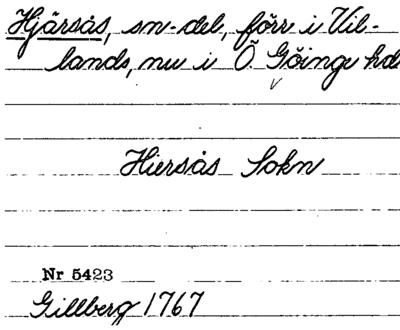 Hjärsås, sn-del, förr i Vil-
lands, nu i Ö. Göinge hd
Hiersås Sokn
Nr 5423
Gillberg 1767